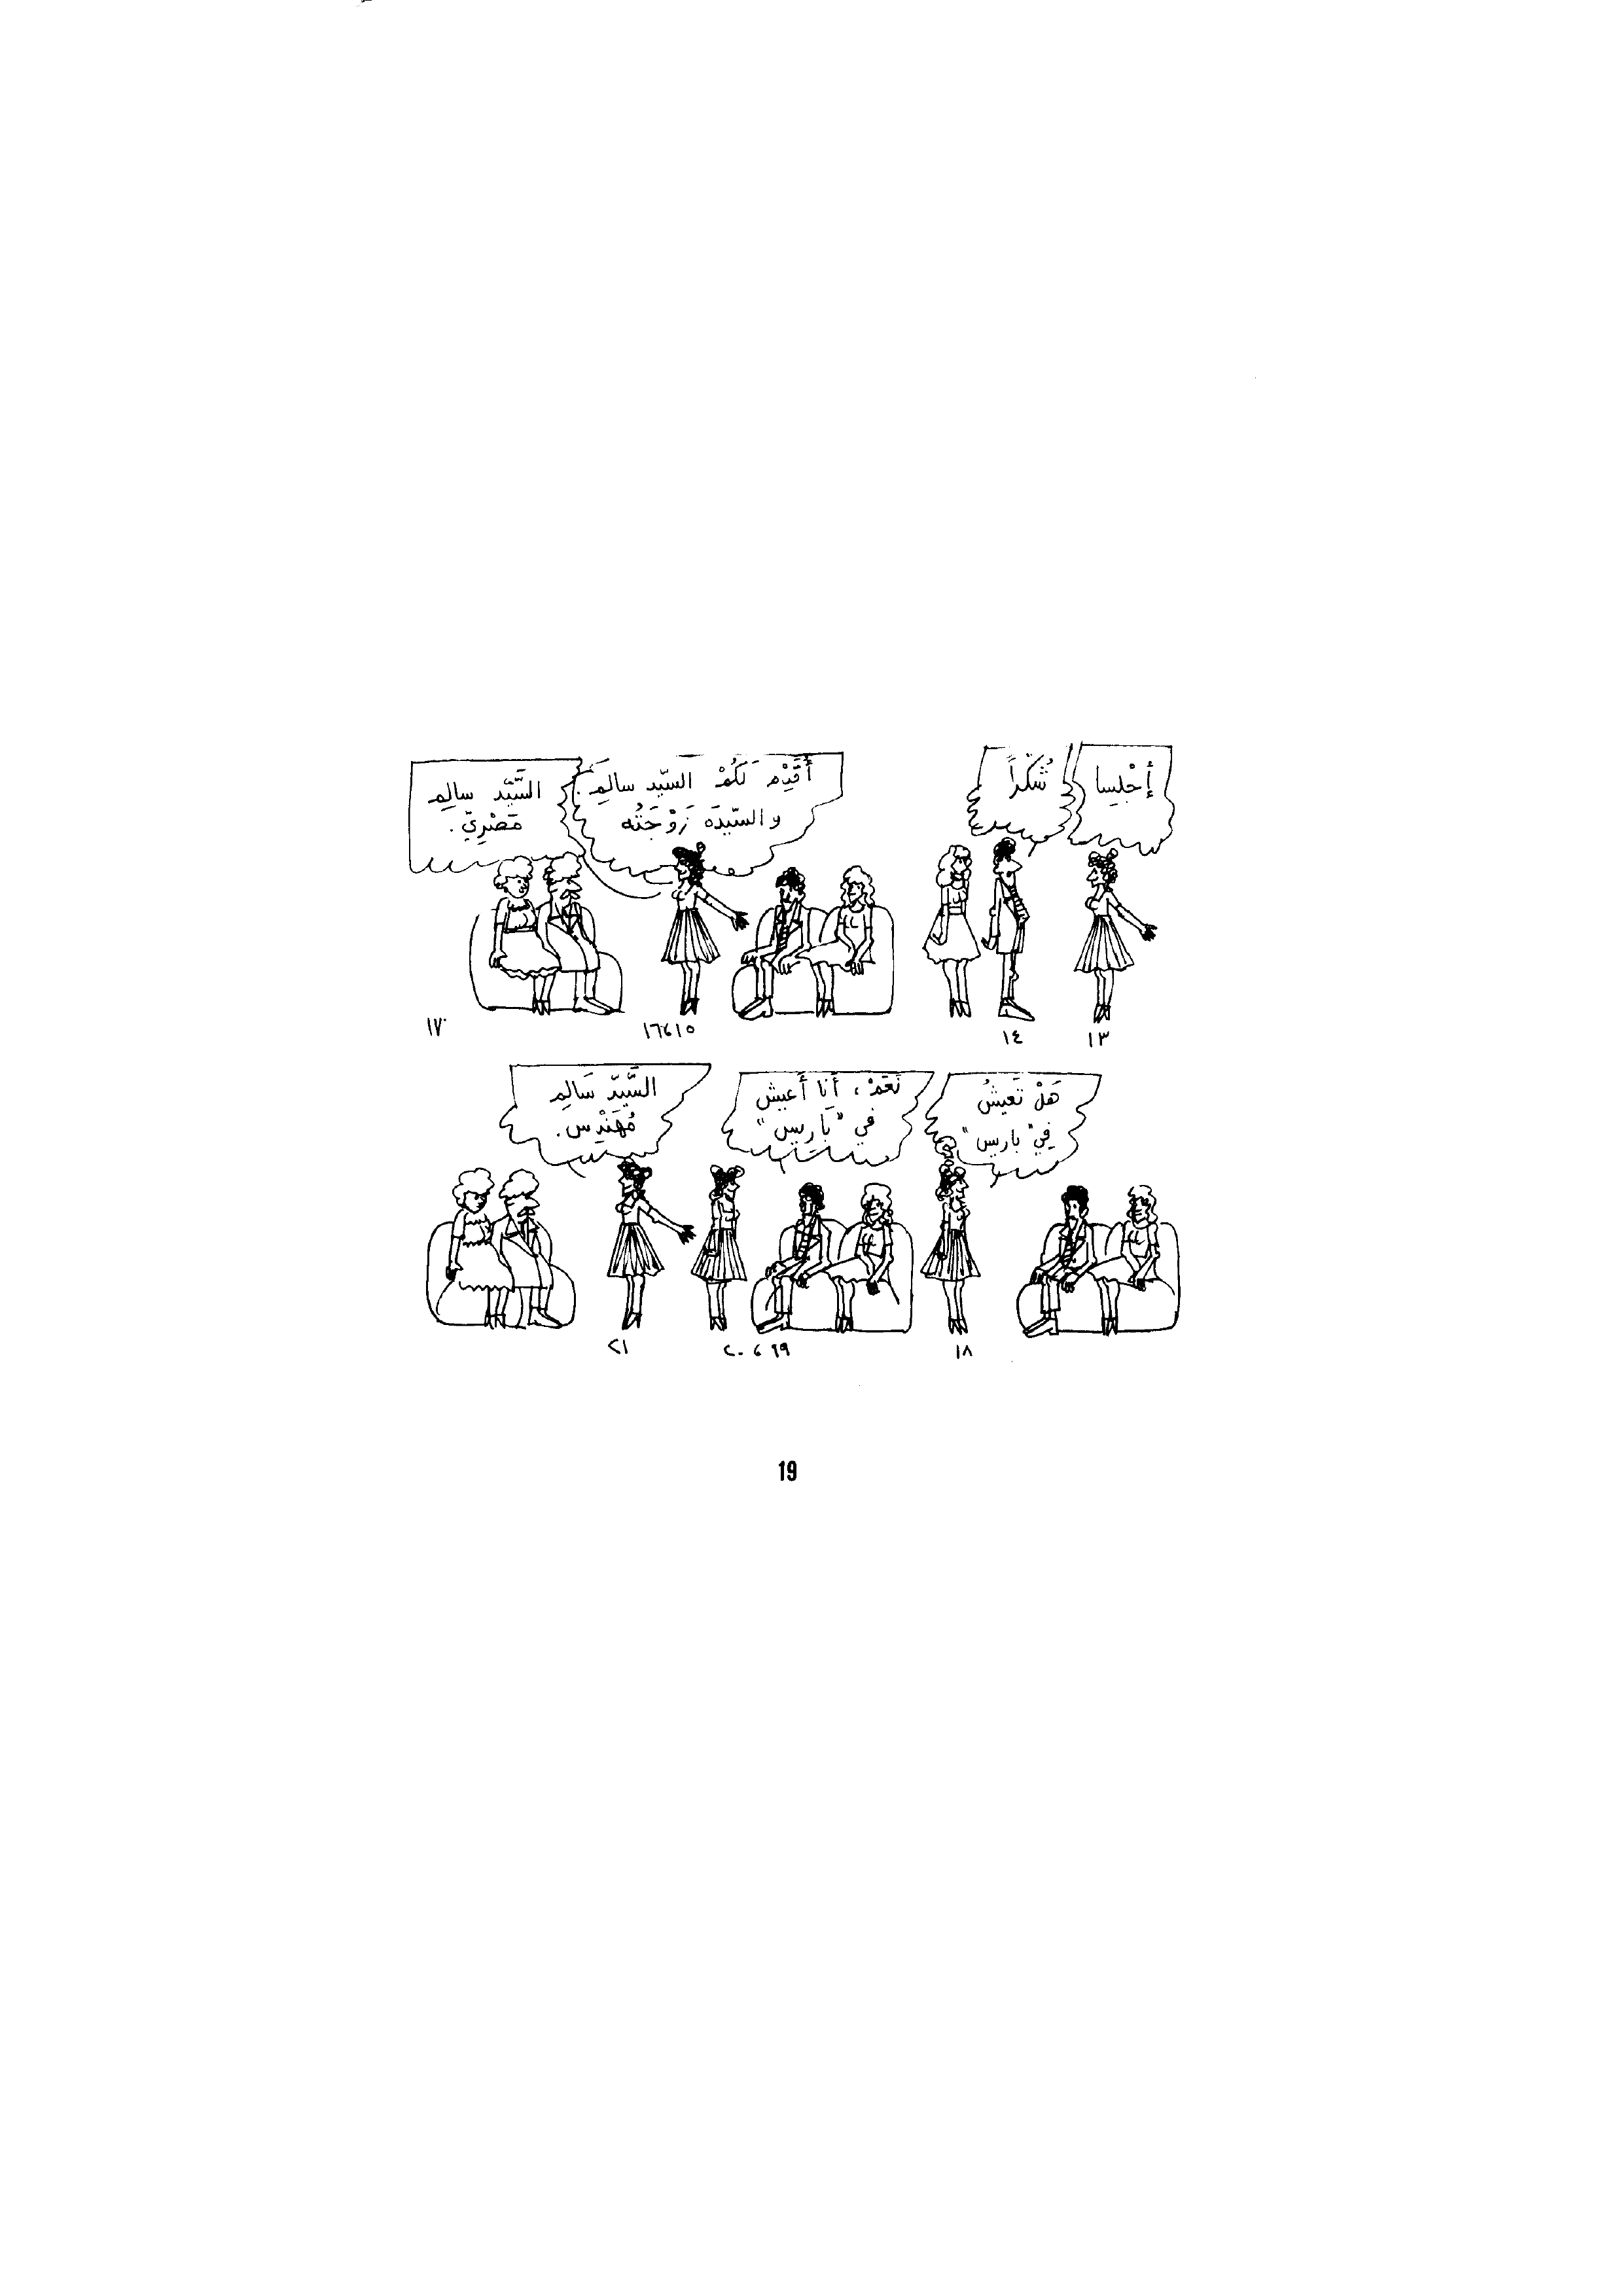 أجْلِسا
شُكْراً
أُقَدِّم لَكُمْ السيّد سالِم.
والسّيّدَه زَوْجَتُه
السَّيّد سالِم
مَصْرِيّ.
١٣
١٤
١٥،١٦
١٧
هَلْ تَعيشُ
فِي "باريس"
نَعَمْ، أَنا أَعيش
في "بَاريس"
السَّيّد سَالِم
مُهَنْدِس.
١٨
١٩ ، ٢٠
٢١
19